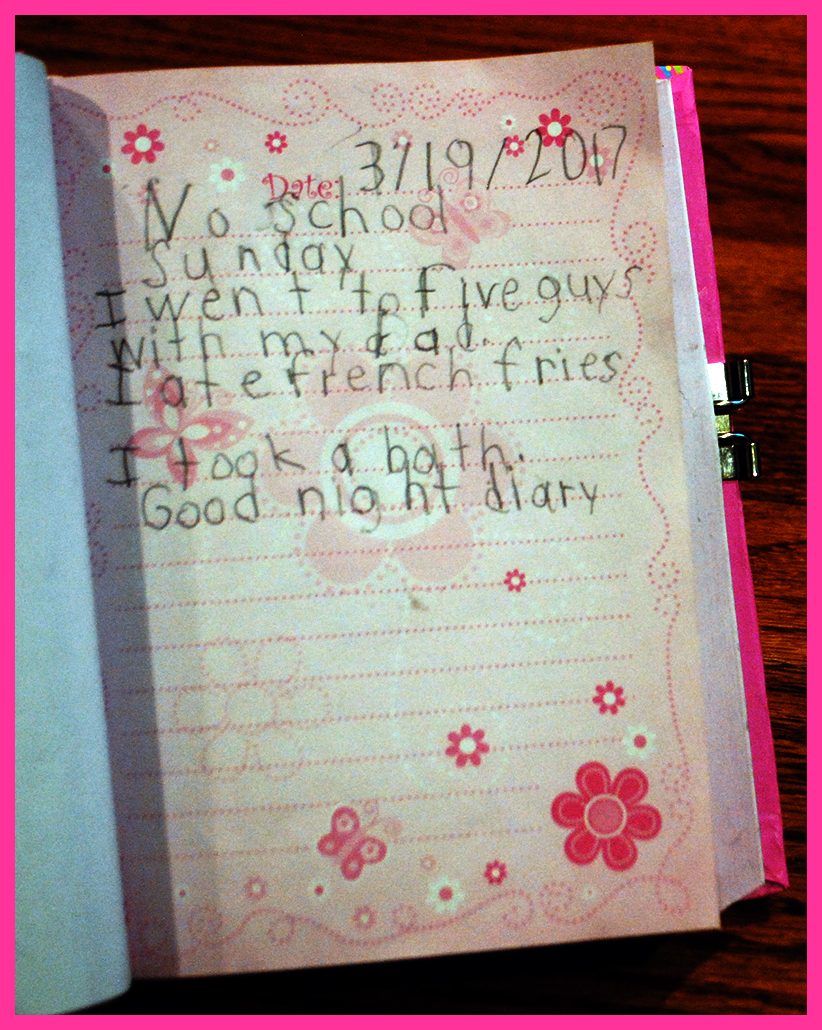 Date: 3/19/2017
No school
Sunday
I went to five guys
with my dad.
I ate french fries
I took a bath.
Good night diary